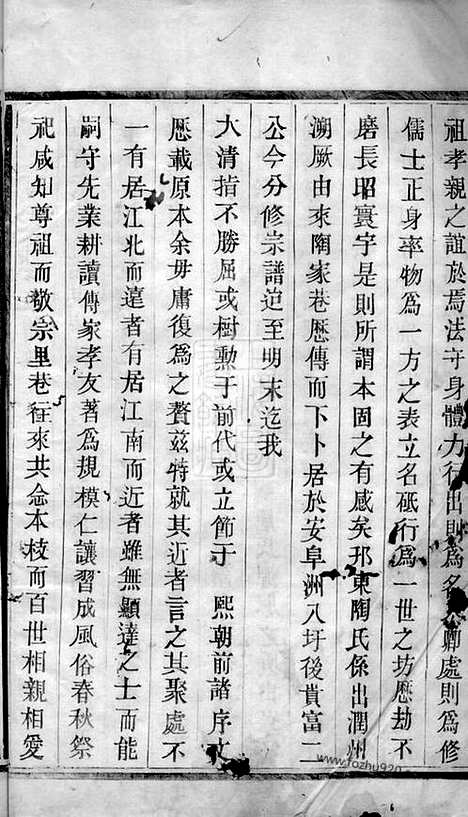 祖孝親之誼於焉法守身體力行出則為名卿處則為修
儒士正身率物為一方之表立名砥行為一世之坊歷劫不
磨長昭寰宇是則所謂本固之有感矣邗東陶氏係出潤州
溯厥由來陶家巷歷傳而下卜居於安阜洲八圩後貴富二
公今分修宗譜迨至明末迄我
大清指不勝屈或樹勲于前代或立節于 熙朝前諸序文
歷載原本余毋庸復為之贅茲特就其近者言之其聚處不
一有居江北而遠者有居江南而近者雖無顯達之士而能
嗣守先業耕讀傳家孝友著為規模仁讓習成風俗春秋祭
祀咸知尊祖而敬宗里巷往來共念本枝而百世相親相愛
www.fozhu920.com